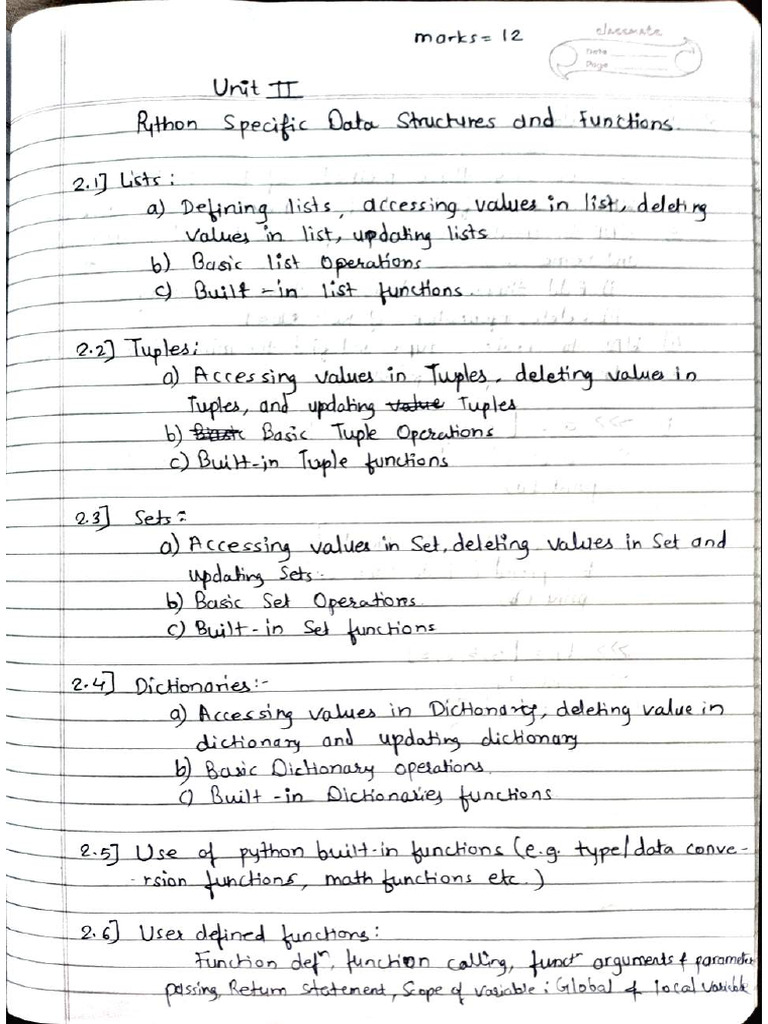 marks = 12
classmate
Date
Page
Unit II
Python Specific Data Structures and Functions.
2.1] Lists :
a) Defining lists, accessing values in list, deleting
values in list, updating lists
b) Basic list Operations
c) Built-in list functions.
2.2] Tuples:
a) Accessing values in Tuples, deleting values in
Tuples, and updating value Tuples
b) Basic Basic Tuple Operations
c) Built-in Tuple functions
2.3] Sets :-
a) Accessing values in Set, deleting values in Set and
updating Sets.
b) Basic Set Operations.
c) Built-in Set functions
2.4] Dictionaries:-
a) Accessing values in Dictionary, deleting value in
dictionary and updating dictionary
b) Basic Dictionary operations.
c) Built-in Dictionaries functions
2.5] Use of python built-in functions (e.g. type/data conve-
-rsion functions, math functions etc.)
2.6] User defined functions:
Function defⁿ, function calling, functⁿ arguments & parameter
passing, Return statement, Scope of variable : Global & local variable